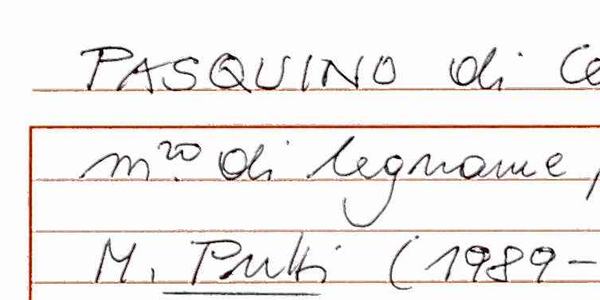 PASQUINO di Ce
m.ro di legname,
M. Pratti (1989-